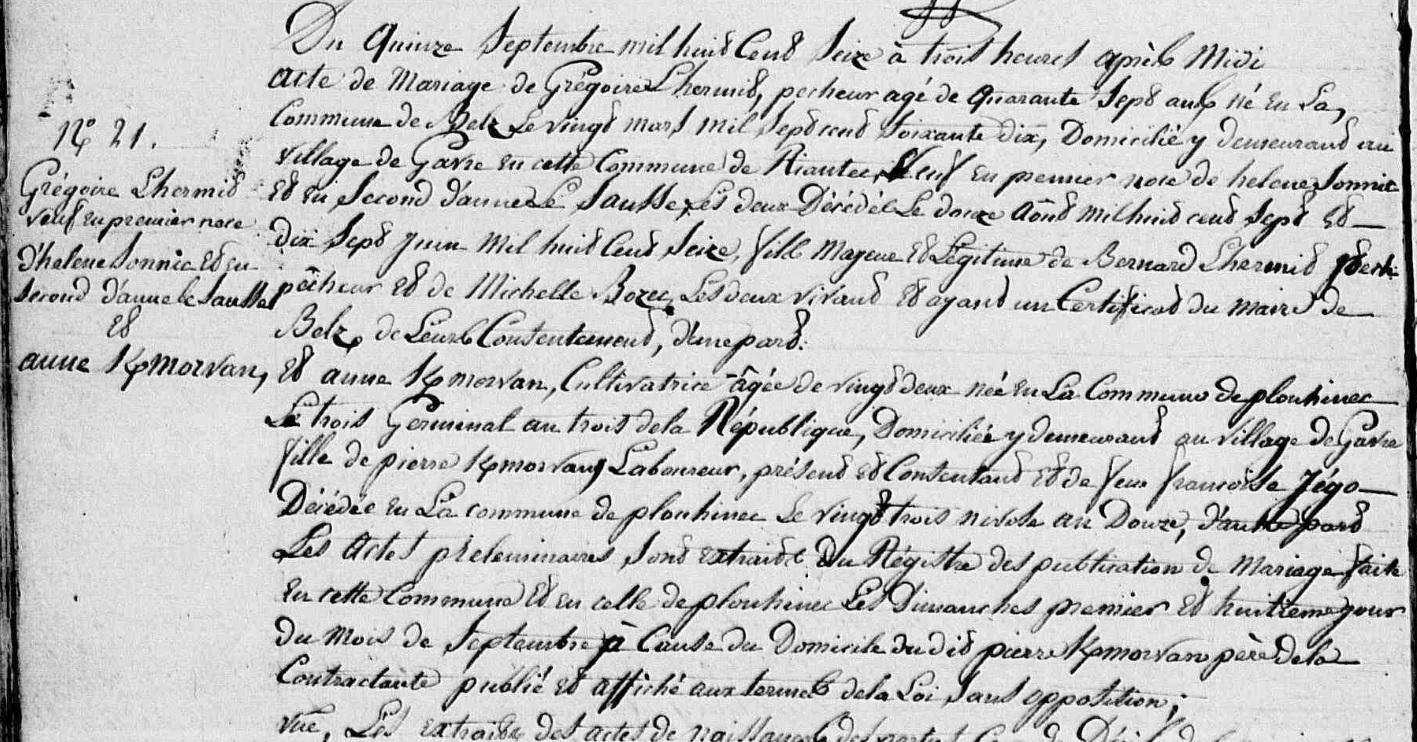 Du quinze Septembre mil huit Cent Seize à trois heures après Midi
acte de Mariage de Grégoire Lhermit, pecheur agé de quarante Sept ans né en La
Commune de Belz Le vingt mars mil Sept cent soixante dix, Domicilié y demeurant au
village de Gavre en cette Commune de Riantec, Veuf en premier noce de helene Sonnic
Et en Second d'anne Le Sausse, Les deux Décédé Le douze août mil huit cent Sept Et
dix Sept Juin Mil huit Cent Seize, fils Mageur Et Légitime de Bernard Lhermit
pêcheur Et de Michelle Bozec, Les deux vivant Et ayant un Certificat du maire de
Belz, de Leurs Consentement, d'une part:
Et anne Kmorvan, Cultivatrice âgée de vingt deux née En La Commune de plouhinec
Le trois Germinal an trois dela République, Domiciliée y demeurant au village de Gavre
fille de pierre Kmorvan, Laboureur, présent et Consentant Et de feue françoise Jégo
Décédée en La commune de plouhinec Le vingt trois nivose an Douze, d'autre part
Les actes preleminaires sont extraits du Régistre des publication de Mariage faite
en cette Commune Et en celle de plouhinec Les Dimanches premier Et huitieme jour
du Mois de Septembre à Cause du Domicile dudit pierre Kmorvan père dela
Contractante publié et affiché aux termes dela Loi sans opposition;
Vue, Les extraits des actes de naissance
N° 21.
Grégoire Lhermit
veuf en premier noce
d'helene Sonnic Et en
second d'anne le Sausse
Et
anne Kmorvan,